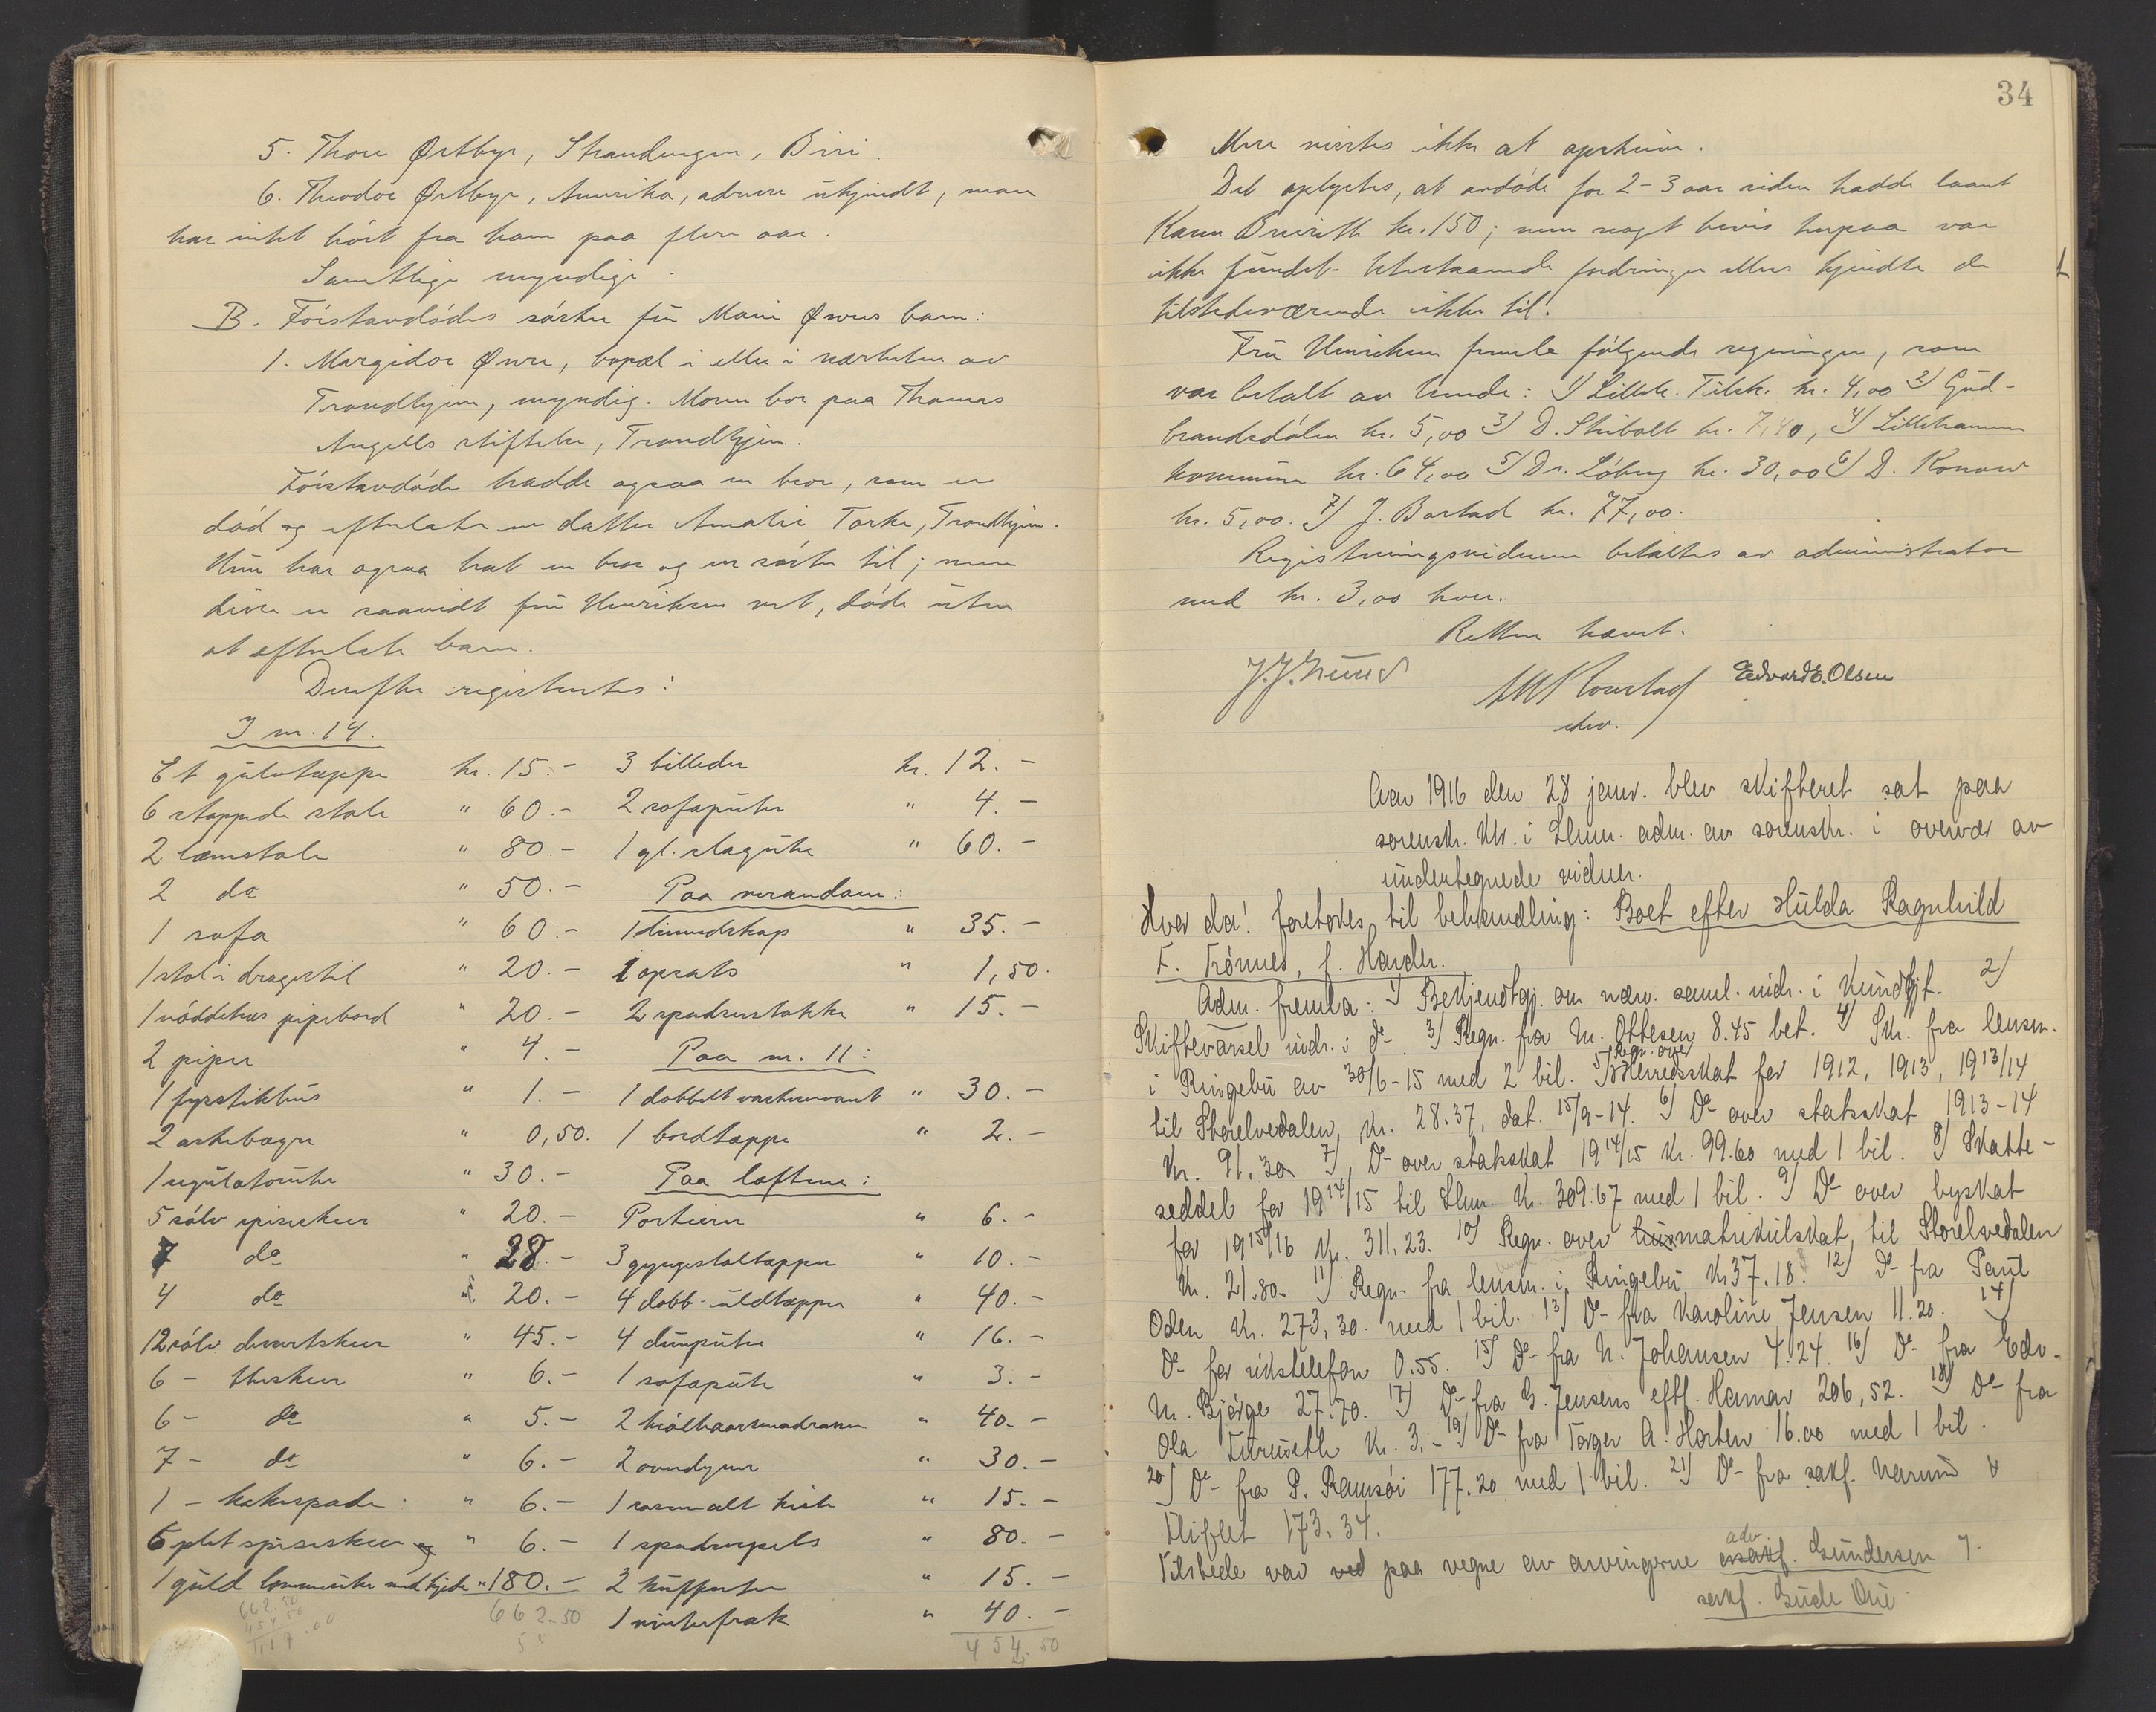 5. Thore Østbye, Strandengen, Biri.
6. Theodor Østbye, Amerika, adresse ukjendt, man
har intet hört fra ham paa flere aar.
Samtlige myndige.
B. Förstavdödes søster fru Marie Øwres barn:
1. Margido Øwre, bopæl i eller i nærheten av
Trondhjem, myndig. Moren bor paa Thomas
Angells stiftelse, Trondhjem.
Förstavdöde hadde ogsaa en bror, som er
död og efterlater en datter Amalie Torke, Trondhjem.
Hun har ogsaa hat en bror og en söster til; men
disse er saavidt fru Henriksen vet, döde uten
at efterlate barn.
Derefter registrertes:
I nr. 14.
Et gulvtæppe kr. 15.-
6 stoppede stole " 60.-
2 lænstole " 80.-
2 do " 50.-
1 sofa " 60.-
1 stol i dragestil " 20.-
1 nöddetræs pipebord " 20.-
2 piper " 4.-
1 fyrstikhus " 1.-
2 askebægre " 0,50.
1 regulatorur " 30.-
5 sölv spiseskeer " 20.-
7 do " 28.-
4 do " 20.-
12 sölv dessertskeer " 45.-
6 - theskeer " 6.-
6 - do " 5.-
7 - do " 6.-
1 - kakespade " 6.-
6 plet spiseskeer " 6.-
1 guld lommeur med kjede " 180.-
662.50
662.50
454.50
3 billeder kr. 12.-
2 sofaputer " 4.-
1 gl. slagur " 60.-
Paa verandaen:
1 linnedskap " 35.-
1 opsats " 1,50.
2 spaderstokke " 15.-
Paa nr. 11:
1 dobbelt vaskeservant " 30.-
1 bordtæppe " 2.-
Paa loftene:
Portierer " 6.-
3 gyngestoltæpper " 10.-
4 dobb. uldtæpper " 40.-
4 dunputer " 16.-
1 sofapute " 3.-
2 krölhaarsmadrasser " 40.-
2 overdyner " 30.-
1 rosemalt kiste " 15.-
1 spaderpels " 80.-
2 kufferter " 15.-
1 vinterfrak " 40.-
454.50
34
Mere vistes ikke at opskrive.
Det oplystes, at avdöde for 2-3 aar siden hadde laant
Karen kr. 150; men noget bevis herpaa var
ikke fundet. Utestaaende fordringer ellers kjendte de
tilstedeværende ikke til.
Fru Henriksen fremla fölgende regninger, som
var betalt av hende: 1) Lilleh. Tilsk. kr. 4,00 2) Gud-
brandsdölen kr. 5,00 3) D. Stibolt kr. 7,40, 4) Lillehammer
kommune kr. 64,00 5) Dr. Löberg kr. 30,00 6) D. Konow
kr. 5,00. 7) J. Bartad kr. 77,00.
Registreringsvidnerne betaltes av administrator
med kr. 3,00 hver.
Retten hævet.
Edvard E. Olsen
Aar 1916 den 28 janv. blev skifteret sat paa
sorenskr. ktr. i Lhmr. adm. av sorenskr. i overvær av
undertegnede vidner.
Hvor da! foretokes til behandling: Boet efter Hulda Ragnhild
F. Trønnes, f. Harder.
Adm. fremla: 1) Bekjendtgj. om nærv. saml. indr. i Kundgjt. 2)
Skiftevarsel indr. i do. 3) Regn. fra M. Ottesen 8.45 bet. 4) Skr. fra lensm.
i Ringebu av 30/6-15 med 2 bil. 5) Regn. over Herredsskat for 1912, 1913, 1913/14
til Storelvedalen, kr. 28.37, dat. 15/9-14. 6) Do over statsskat 1913-14
kr. 91.30 7) Do over statsskat 1914/15 kr. 99.60 med 1 bil. 8) Skatte-
seddel for 1914/15 til Lhmr. kr. 309.67 med 1 bil. 9) Do over byskat
for 1915/16 kr. 311.23. 10) Regn. over matrikulskat til Storelvedalen
kr. 21.80. 11) Regn. fra lensm. i Ringebu kr 37.18. 12) Do fra Paul
Oden kr. 273.30. med 1 bil. 13) Do fra Karoline Jensen 11.20. 14)
Do for rikstelefon 0.55. 15) Do fra N. Johansen 4.24. 16) Do fra Edv.
M. Bjørge 27.70. 17) Do fra G. Jensens eftf. Hamar 206,52. 18) Do fra
Ola Furuseth kr. 3.- 19) Do fra Torger A. Horten 16.00 med 1 bil.
20) Do fra P. Ramsøi 177.20 med 1 bil. 21) Do fra sakf. Narum &
Fliflet 173.34.
Tilstede var ved paa vegne av arvingerne adv. Gundersen
sakf. Gude Due